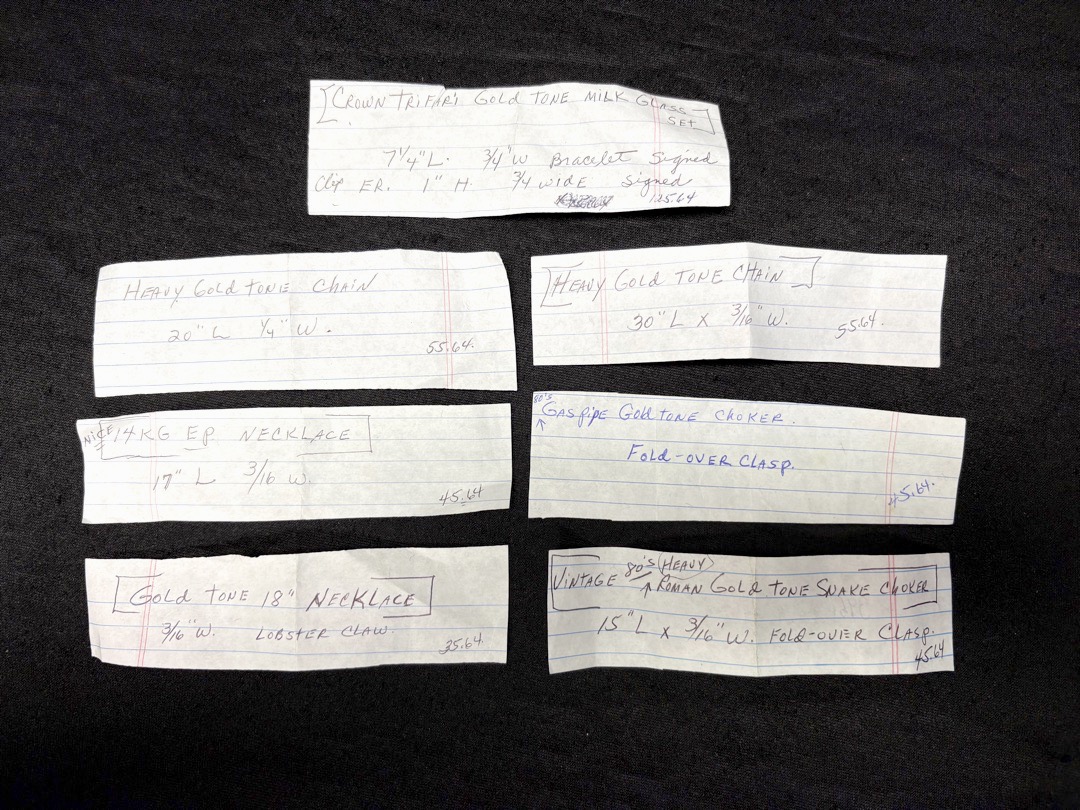 [CROWN TRIFARI GOLD TONE MILK GLASS
SET]
7 1/4" L. 3/4" W BRACELET Signed
Clip ER. 1" H. 3/4 WIDE Signed
125.64
HEAVY GOLD TONE CHAIN
20" L 1/4" W.
55.64.
[HEAVY GOLD TONE CHAIN]
30" L X 3/16" W.
55.64.
NICE 14KG EP. NECKLACE
17" L 3/16 W.
45.64
80'S
↑ GASPIPE GOLD TONE CHOKER.
FOLD-OVER CLASP.
45.64.
GOLD TONE 18" NECKLACE
3/16" W. LOBSTER CLAW.
35.64.
80'S (HEAVY)
VINTAGE ↑ ROMAN GOLD TONE SNAKE CHOKER
15" L X 3/16" W. FOLD-OVER CLASP.
45.64